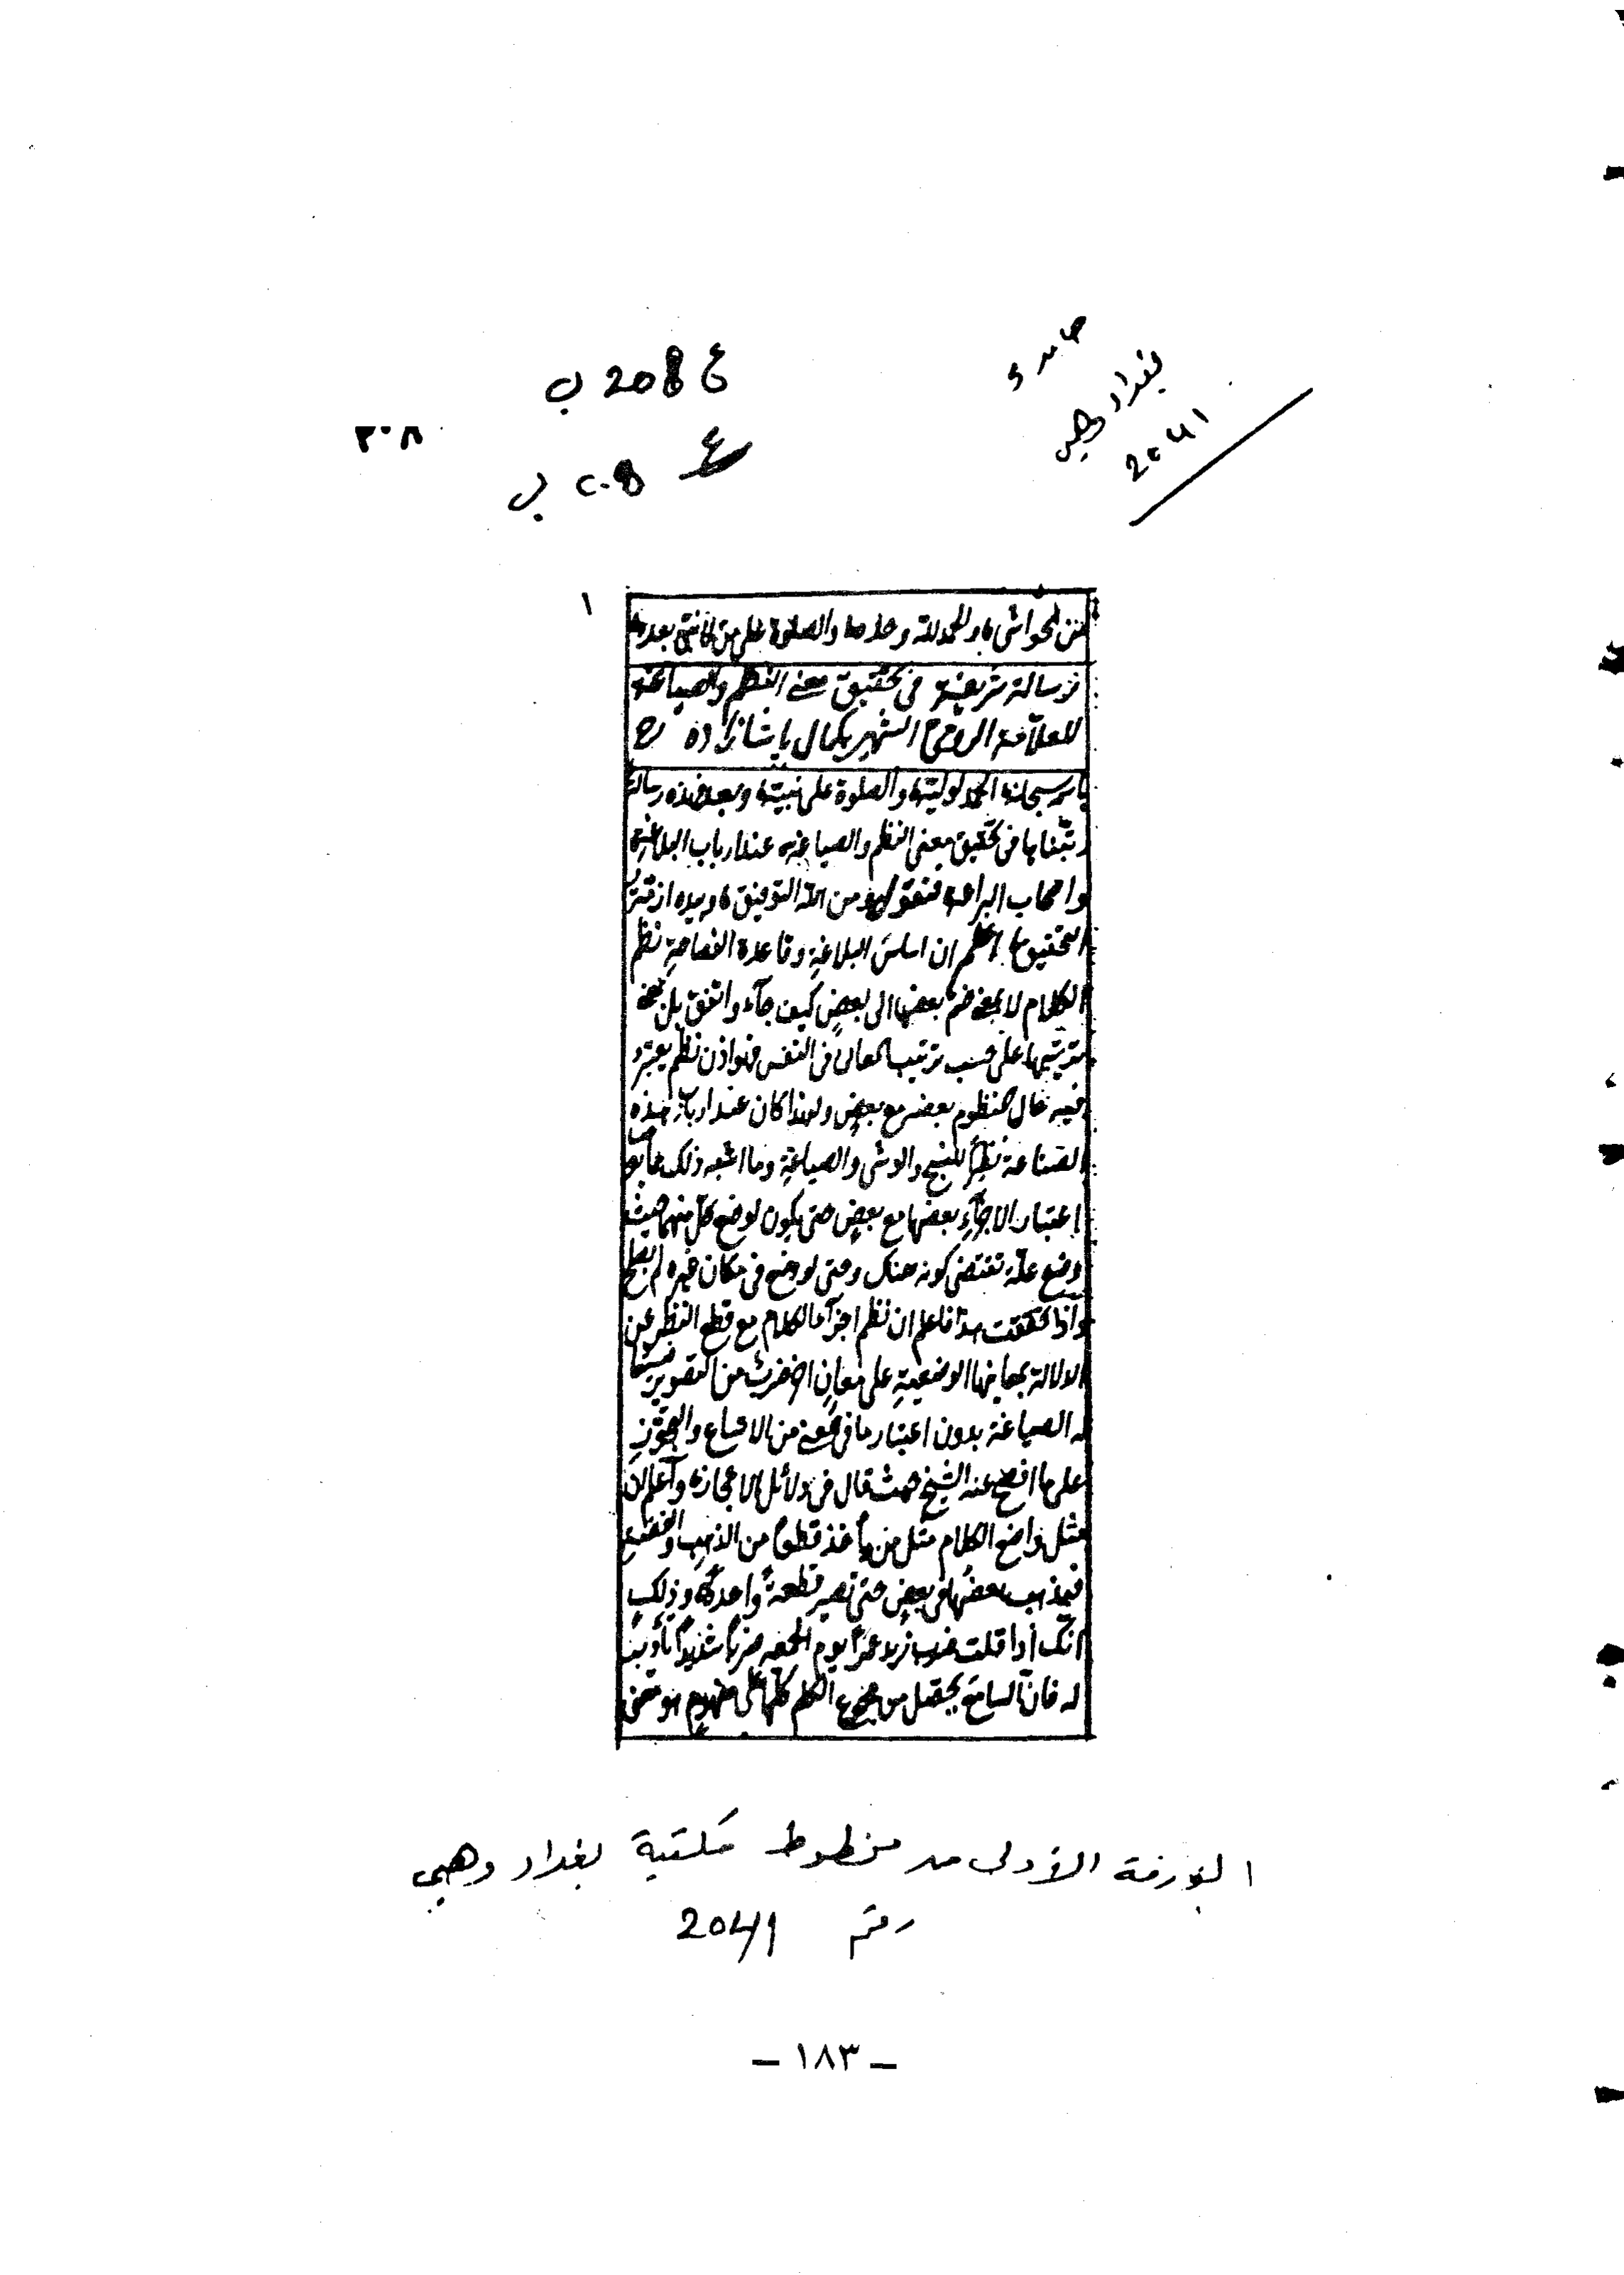 ع 208 ب
بغداد وهبي
2041
٢٠٨
ع
٢٠8 ب
١
من الحواشي والحمد لله وحده والصلوة على من لا نبي بعده
رسالة شريفة في تحقيق معنى النظم والصياغة
للعلامة الرومي الشهير بكمال پاشا زاده رح
باسمه سبحانه الحمد لوليه والصلوة على نبيه وبعد فهذه رسالة
رتبناها في تحقيق معنى النظم والصياغة عند ارباب البلاغة
واصحاب البراعة فنقول ومن الله التوفيق وبيده ازمة
التحقيق اعلم ان اساس البلاغة وقاعدة الفصاحة نظم
الكلام لا بمعنى ضم بعضها الى بعض كيف جآء واتفق بل بمعنى
ترتيبها على حسب ترتيب المعانى فى النفس فهو اذن نظم يعتبر
فيه حال المنظوم بعضه مع بعض ولهذا كان عند ارباب هذه
الصناعة نظيرًا للنسج والوشى والصياغة وما اشبه ذلك مما يوجب
اعتبار الاجزآء بعضها مع بعض حتى يكون لوضع كل منها حيث
وضع علة تقتضى كونه هناك وحتى لو وضع فى مكان غيره لم يصلح
واذا تحققت هذا فاعلم ان نظم اجزآء الكلام مع قطع النظر عن
الدلالة بمعانيها الوضعية على معان اخر ضرب من التصوير
الصياغة بدون اعتبار ما فى المعنى من الاتساع والتجوز
على ما افصح عنه الشيخ حيث قال فى دلائل الاعجاز واعلم ان
مثل واضع الكلام مثل من يأخذ قطعًا من الذهب والفضة
فيذيب بعضها فى بعض حتى تصير قطعة واحدة وذلك
انك اذا قلت ضرب زيد عمرًا يوم الجمعة ضربًا شديدًا تأديبًا
له فان السامع يحصل من مجموع الكلم كلها على مفهوم هو معنى
الورقة الأولى من مخطوط مكتبة بغداد وهبي
رقم 2041
– ١٨٣ –